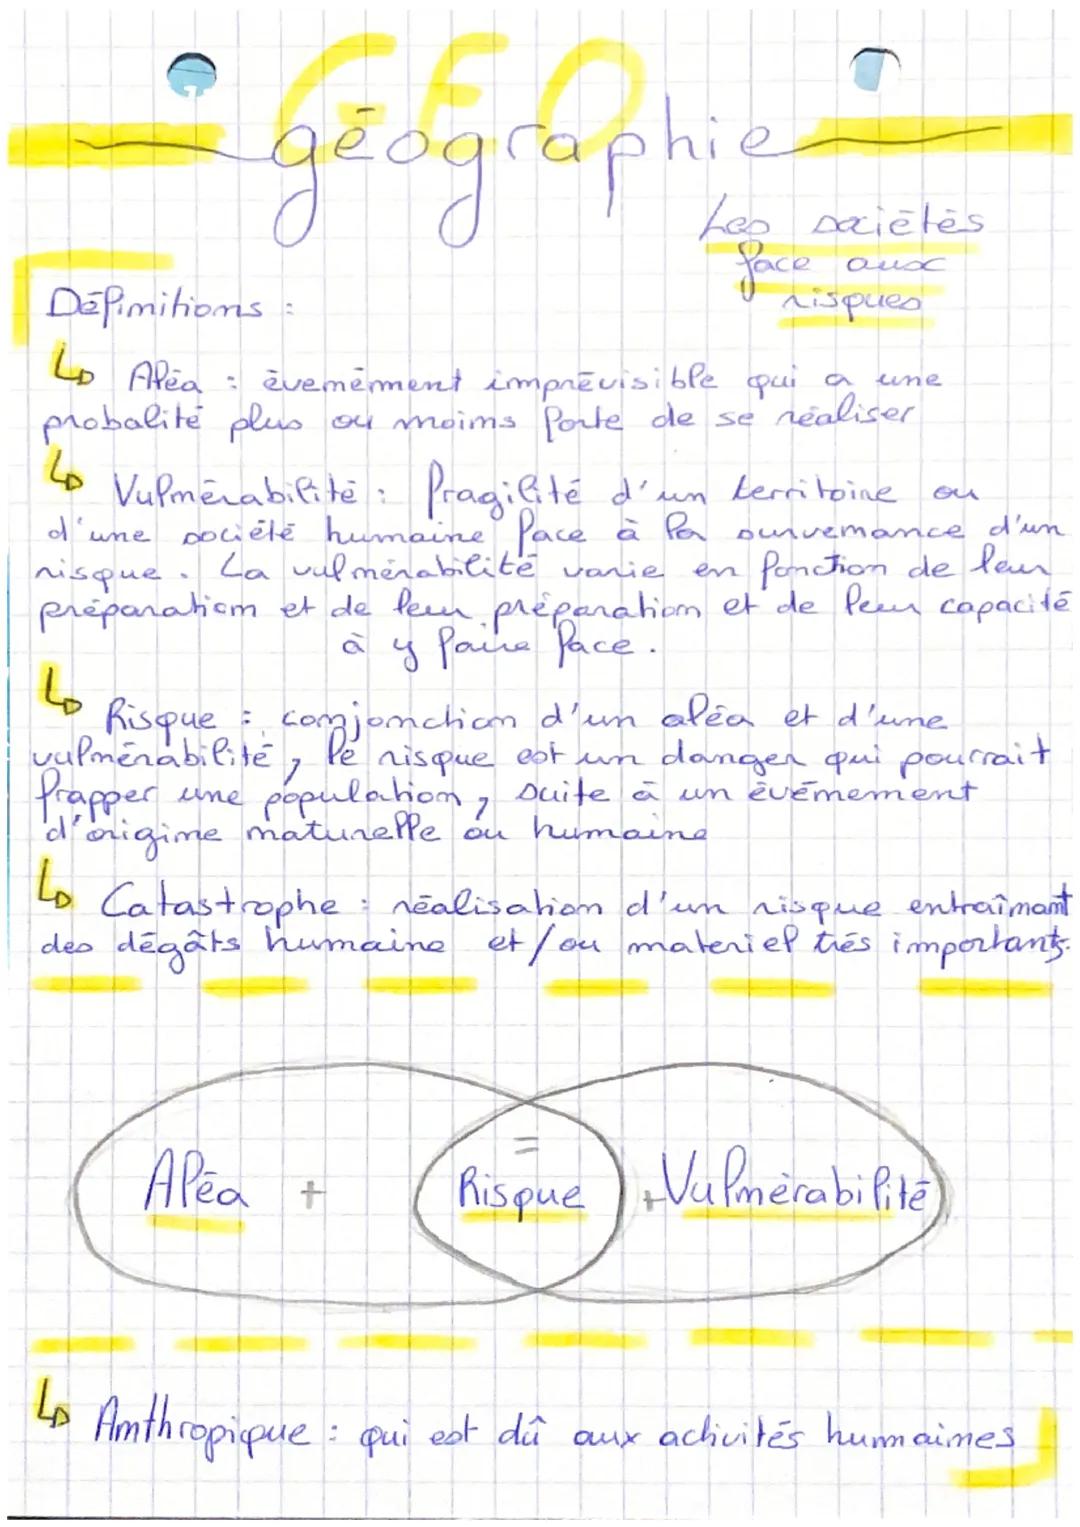 GEO
géographie
Les sociétés
face aux
risques
Définitions :
Aléa : évenémment imprévisible qui a une
probalité plus ou moins forte de se réaliser
Vulnérabilité : fragilité d'un territoire ou
d'une société humaine face à la survenance d'un
risque. La vulnérabilité varie en fonction de leur
préparation et de leur préparation et de leur capacité
à y faire face.
Risque : conjonction d'un aléa et d'une
vulnérabilité, le risque est un danger qui pourrait
frapper une population, suite à un événement
d'origine naturelle ou humaine
Catastrophe : réalisation d'un risque entraînant
des dégâts humains et/ou materiel très importants.
=
Aléa + Risque + Vulnérabilité
Anthropique : qui est dû aux activités humaines